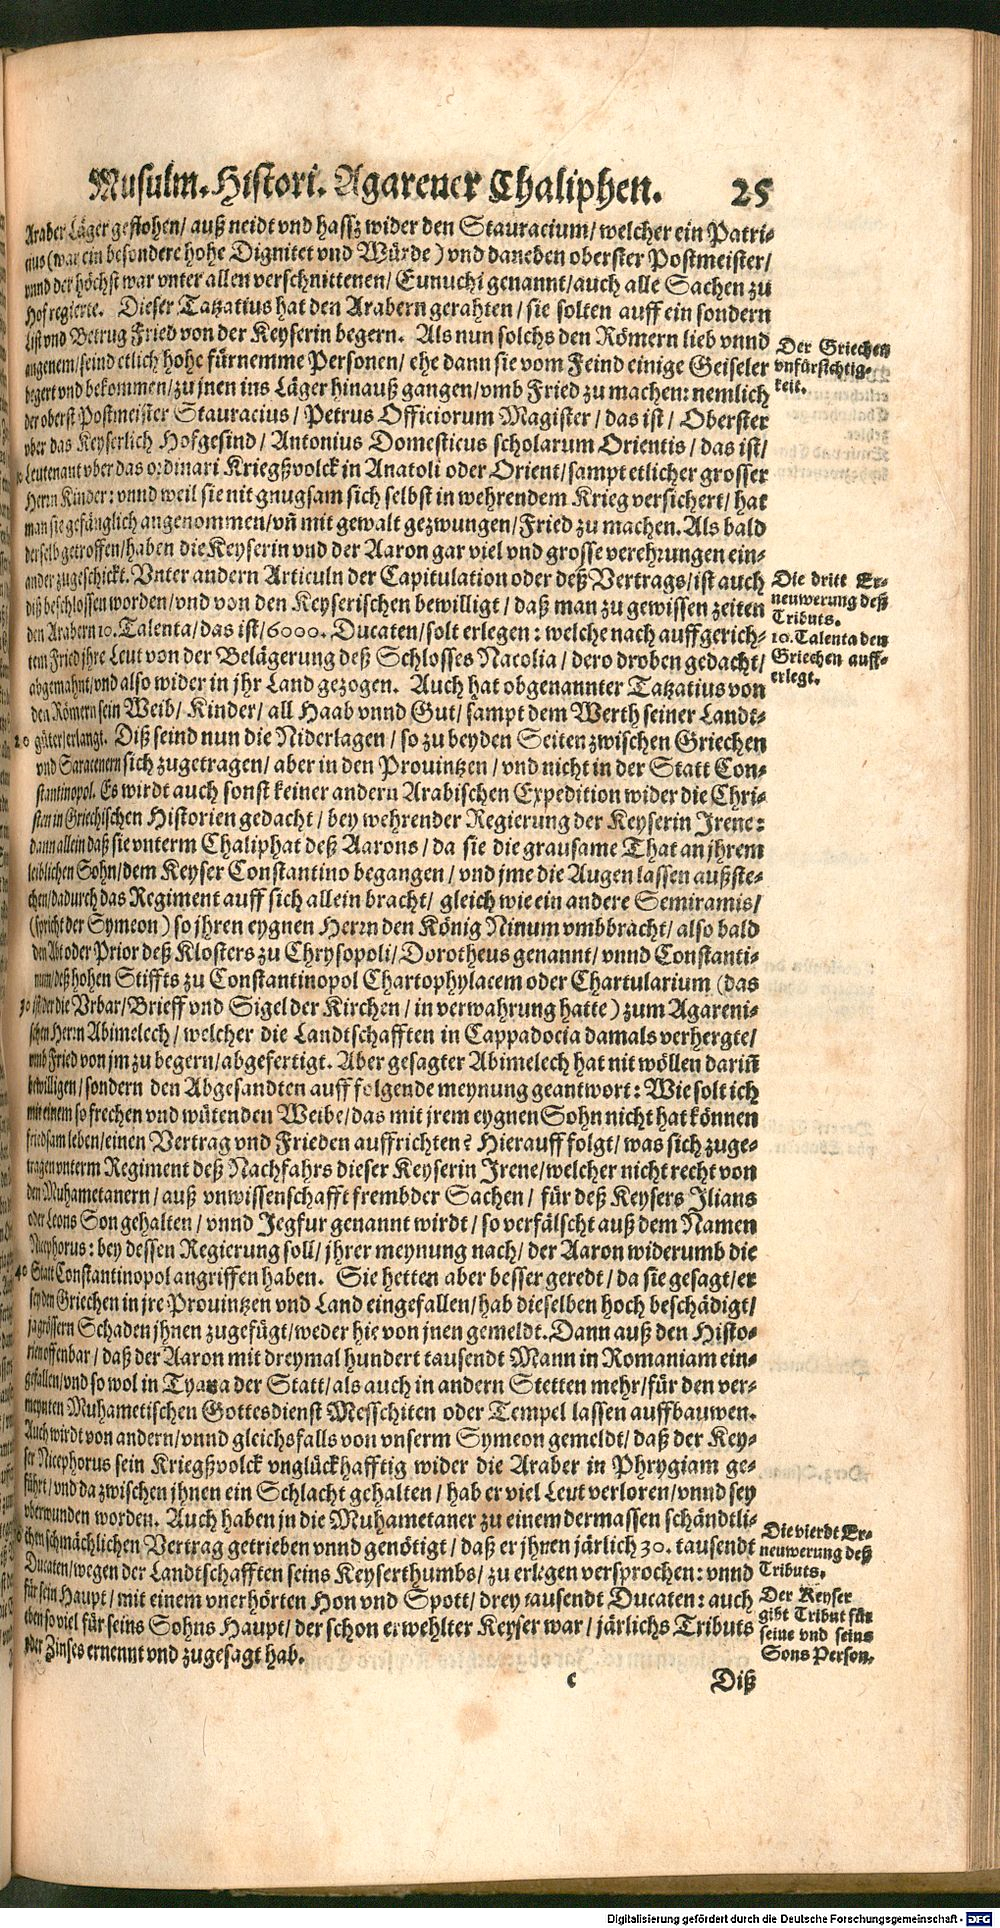 Musulm. Histori. Agarener Chaliphen. 25
Araber Läger geflohen/ auß neidt vnd hassz wider den Stauracium/ welcher ein Patri-
tius (war ein besondere hohe Dignitet vnd Würde) vnd daneben oberster Postmeister/
vnnd der höchst war vnter allen verschnittenen/ Eunuchi genannt/ auch alle Sachen zu
Hof regierte. Dieser Tatzatius hat den Arabern gerahten/ sie solten auff ein sondern
List vnd Betrug Fried von der Keyserin begern. Als nun solchs den Römern lieb vnnd
angenem/ seind etlich hohe fürnemme Personen/ ehe dann sie vom Feind einige Geiseler
begert vnd bekommen/ zu jnen ins Läger hinauß gangen/ vmb Fried zu machen: nemlich
der oberst Postmeister Stauracius/ Petrus Officiorum Magister/ das ist/ Oberster
vber das Keyserlich Hofgesind/ Antonius Domesticus scholarum Orientis/ das ist/
10 Leutenant vber das ordinari Kriegßvolck in Anatoli oder Orient/ sampt etlicher grosser
Herrn Kinder: vnnd weil sie nit gnugsam sich selbst in wehrendem Krieg versichert/ hat
man sie gefänglich angenommen/ vñ mit gewalt gezwungen/ Fried zu machen. Als bald
derselb getroffen/ haben die Keyserin vnd der Aaron gar viel vnd grosse verehrungen ein-
ander zugeschickt. Vnter andern Articuln der Capitulation oder deß Vertrags/ ist auch
diß beschlossen worden/ vnd von den Keyserischen bewilligt/ daß man zu gewissen zeiten
den Arabern 10. Talenta/ das ist/ 6000. Ducaten/ solt erlegen: welche nach auffgerich-
tem Fried jhre Leut von der Belägerung deß Schlosses Nacolia/ dero droben gedacht/
abgemahnt/ vnd also wider in jhr Land gezogen. Auch hat obgenannter Tatzatius von
den Römern sein Weib/ Kinder/ all Haab vnnd Gut/ sampt dem Werth seiner Landt-
20 güter/ erlangt. Diß seind nun die Niderlagen/ so zu beyden Seiten zwischen Griechen
vnd Saracenern sich zugetragen/ aber in den Prouintzen/ vnd nicht in der Statt Con-
stantinopol. Es wirdt auch sonst keiner andern Arabischen Expedition wider die Chri-
sten in Griechischen Historien gedacht/ bey wehrender Regierung der Keyserin Irene:
dann allein daß sie vnterm Chaliphat deß Aarons/ da sie die grausame That an jhrem
leiblichen Sohn/ dem Keyser Constantino begangen/ vnd jme die Augen lassen außste-
chen/ dadurch das Regiment auff sich allein bracht/ gleich wie ein andere Semiramis/
(spricht der Symeon) so jhren eygnen Herrn den König Ninum vmbbracht/ also bald
den Abt oder Prior deß Klosters zu Chrysopoli/ Dorotheus genannt/ vnnd Constanti-
num/ deß hohen Stiffts zu Constantinopol Chartophylacem oder Chartularium (das
30 ist der die Vrbar/ Brieff vnd Sigel der Kirchen/ in verwahrung hatte) zum Agareni-
schen Herrn Abimelech/ welcher die Landtschafften in Cappadocia damals verhergte/
vmb Fried von jm zu begern/ abgefertigt. Aber gesagter Abimelech hat nit wöllen dariñ
bewilligen/ sondern den Abgesandten auff folgende meynung geantwort: Wie solt ich
mit einem so frechen vnd wütenden Weibe/ das mit jrem eygnen Sohn nicht hat können
friedsam leben/ einen Vertrag vnd Frieden auffrichten? Hierauff folgt/ was sich zuge-
tragen vnterm Regiment deß Nachfahrs dieser Keyserin Irene/ welcher nicht recht von
den Muhametanern/ auß vnwissenschafft frembder Sachen/ für deß Keysers Ilians
oder Leons Son gehalten/ vnnd Jegfur genannt wirdt/ so verfälscht auß dem Namen
Nicephorus: bey dessen Regierung soll/ jhrer meynung nach/ der Aaron widerumb die
40 Statt Constantinopol angriffen haben. Sie hetten aber besser geredt/ da sie gesagt/ er
sey den Griechen in jre Prouintzen vnd Land eingefallen/ hab dieselben hoch beschädigt/
ja grössern Schaden jhnen zugefügt/ weder hie von jnen gemeldt. Dann auß den Histo-
rien offenbar/ daß der Aaron mit dreymal hundert tausendt Mann in Romaniam ein-
gefallen/ vnd so wol in Tyana der Statt/ als auch in andern Stetten mehr/ für den ver-
meynten Muhametischen Gottesdienst Messchiten oder Tempel lassen auffbauwen.
Auch wirdt von andern/ vnnd gleichsfalls von vnserm Symeon gemeldt/ daß der Key-
ser Nicephorus sein Kriegßvolck vnglückhafftig wider die Araber in Phrygiam ge-
führt/ vnd da zwischen jhnen ein Schlacht gehalten/ hab er viel Leut verloren/ vnnd sey
vberwunden worden. Auch haben jn die Muhametaner zu einem dermassen schändtli-
chen schmächlichen Vertrag getrieben vnnd genötigt/ daß er jhnen järlich 30. tausendt
Ducaten/ wegen der Landtschafften seins Keyserthumbs/ zu erlegen versprochen: vnnd
für sein Haupt/ mit einem vnerhörten Hon vnd Spott/ drey tausendt Ducaten: auch
eben so viel für seins Sohns Haupt/ der schon erwehlter Keyser war/ järlichs Tributs
oder Zinses ernennt vnd zugesagt hab.
c Diß
Der Griechen
vnfürsichtig-
keit.
Die dritt Er-
neuwerung deß
Tributs.
10. Talenta den
Griechen auff-
erlegt.
Die vierdt Er-
neuwerung deß
Tributs.
Der Keyser
gibt Tribut für
seine vnd seins
Sons Person.
Digitalisierung gefördert durch die Deutsche Forschungsgemeinschaft - DFG